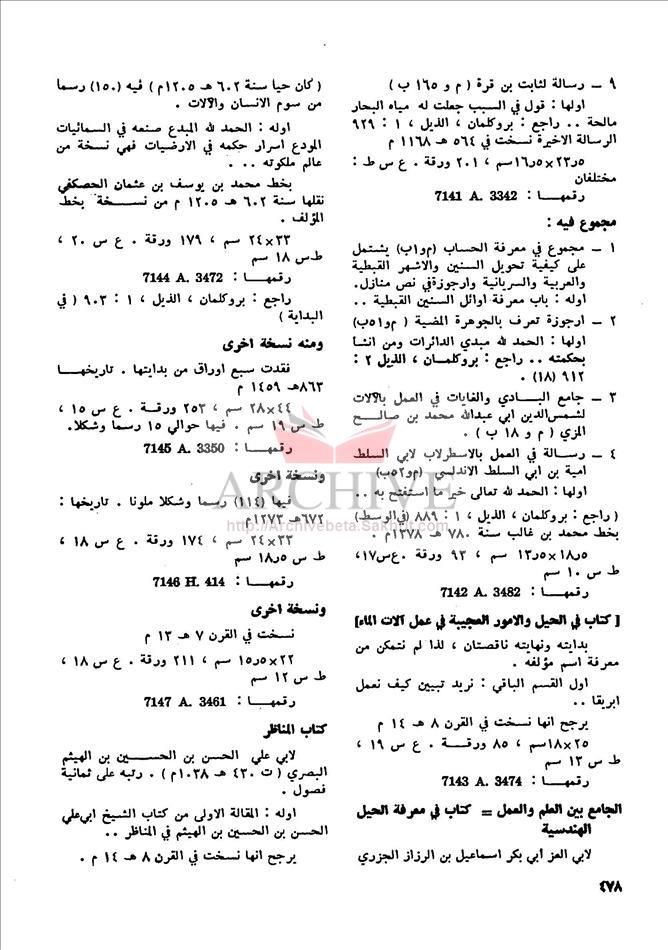 ٩ – رسالة لثابت بن قرة ( م و ١٦٥ ب )
اولها : قول في السبب جعلت له مياه البحار
مالحة .. راجع : بروكلمان ، الذيل ، ١ : ٩٢٩
الرسالة الاخيرة نسخت في ٥٦٤ هـ ١١٦٨ م
٢٣٫٥×١٦٫٥سم ، ٢٠١ ورقة . ع س ط :
مختلفان
رقمهـــا : 7141 A. 3342
مجموع فيه :
١ – مجموع في معرفة الحساب (م و١ب) يشتمل
على كيفية تحويل السنين والاشهر القبطية
والعربية والسريانية وارجوزة في نص منازل .
اوله : باب معرفة اوائل السنين القبطية ..
٢ – ارجوزة تعرف بالجوهرة المضية ( م و٥١ب)
اولها : الحمد لله مبدي الدائرات ومن انشا
بحكمته .. راجع : بروكلمــان ، الذيل ٢ :
٩١٢ (١٨) .
٣ – جامع البـــادي والغايات في العمل بالآلات
لشمس الدين ابي عبدالله محمد بن صالــح
المزي ( م و ١٨ ب ) .
٤ – رسالة في العمل بالاسطرلاب لابي السلط
امية بن ابي السلط الاندلسي (م و٥٢ب)
اولها : الحمد لله تعالى خير ما استفتح به ..
( راجع : بروكلمان ، الذيل ، ١ : ٨٨٩ (في الوسط)
بخط محمد بن غالب سنة ٧٨٠ هـ ١٣٧٨م .
١٨٫٥×١٣٫٥ سم ، ٩٣ ورقة . ع س ١٧،
ط س ١٠ سم
رقمهـــا : 7142 A. 3482
[ كتاب في الحيل والامور العجيبة في عمل آلات الماء]
بدايته ونهايته ناقصتان ، لذا لم نتمكن من
معرفة اسم مؤلفه .
اول القسم الباقي : نريد تبيين كيف نعمل
ابريقا ..
يرجح انها نسخت في القرن ٨ هـ ١٤ م
٢٥×١٨سم ، ٨٥ ورقــة . ع س ١٩ ،
ط س ١٣ سم
رقمهـــا : 7143 A. 3474
الجامع بين العلم والعمل = كتاب في معرفة الحيل
الهندسية
لابي العز أبي بكر اسماعيل بن الرزاز الجزري
( كان حيا سنة ٦٠٢ هـ ١٢٠٥م ) فيه (١٥٠) رسما
من سوم الانسان والآلات .
اوله : الحمد لله المبدع صنعه في السمائيات
المودع اسرار حكمه في الارضيات فهي نسخة من
عالم ملكوته .. .
بخط محمد بن يوسف بن عثمان الحصكفي
نقلها سنة ٦٠٢ هـ ١٢٠٥ م من نســـخة بخط
المؤلف .
٣٣×٢٤ سم ، ١٧٩ ورقة . ع س ٢٠ ،
ط س ١٨ سم
رقمهـــا : 7144 A. 3472
راجع : بروكلمان ، الذيل ، ١ : ٩٠٣ ( في
البداية )
ومنه نسخة اخرى
فقدت سبع اوراق من بدايتها . تاريخهـــا
٨٦٣هـ ١٤٥٩ م
٤٤×٢٨ سم ، ٢٥٣ ورقــة . ع س ١٥ ،
ط س ١٩ سم . فيها حوالي ١٥ رسما وشكلا.
رقمهـــا : 7145 A. 3350
ونسخة اخرى
فيها (١١٤) رسما وشكلا ملونا . تاريخها :
٦٧٢هـ ١٢٧٣م
٣٣×٢٤ سم ، ١٧٤ ورقة . ع س ١٨ ،
ط س ١٨٫٥ سم
رقمهـــا : 7146 H. 414
ونسخة اخرى
نسخت في القرن ٧ هـ ١٣ م
٢٢×١٥٫٥ سم ، ٢١١ ورقة . ع س ١٨ ،
ط س ١٢ سم
رقمهـــا : 7147 A. 3461
كتاب المناظر
لابي علي الحسن بن الحســـين بن الهيثم
البصري ( ت ٤٣٠ هـ ١٠٣٨م ) . رتبه على ثمانية
فصول .
اوله : المقالة الاولى من كتاب الشيخ ابي علي
الحسن بن الحسين بن الهيثم في المناظر ..
يرجح انها نسخت في القرن ٨ هـ ١٤ م .
٤٧٨
ARCHIVE
http://Archivebeta.Sakhrit.com